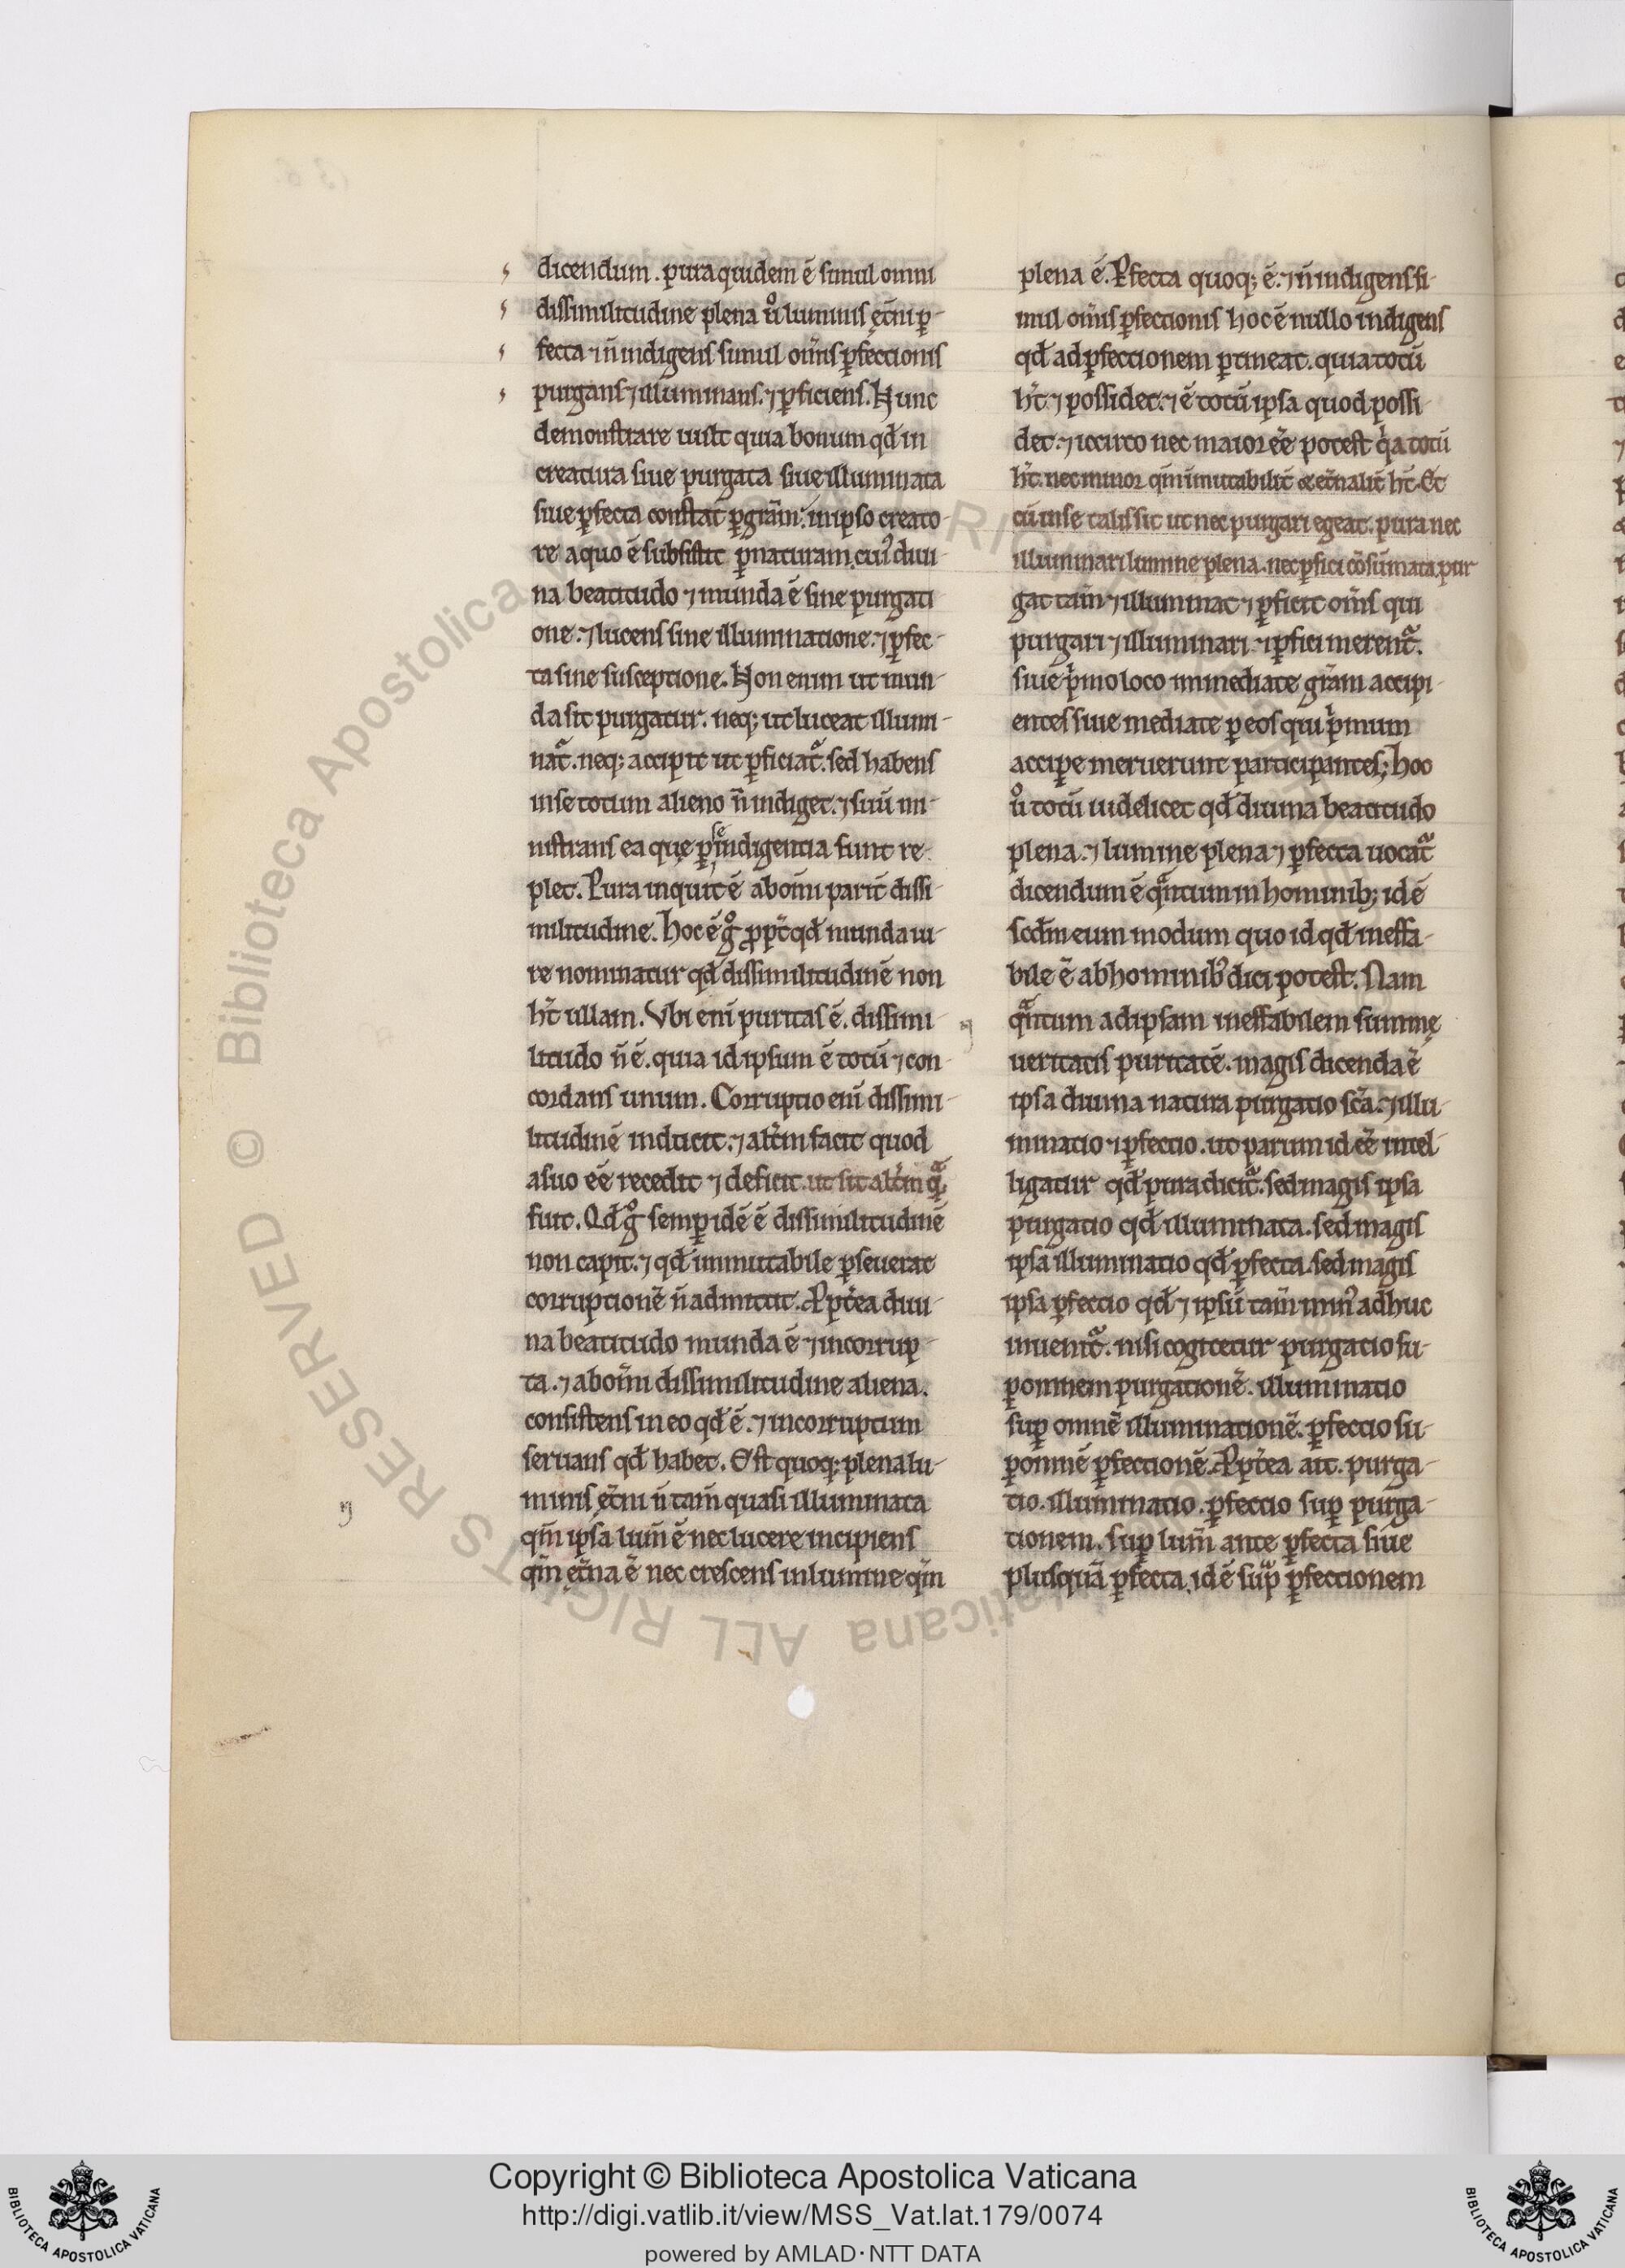 dicendum. pura quidem ē simul omni
dissimilitudine plena ů luminis ęt̄ni ꝑ-
fecta ⁊ n̄ indigens simul om̄is ꝑfectionis
purgans ⁊ illuminans. ⁊ ꝑficiens. Hunc
demonstrare uult quia bonum qđ in
creatura siue purgata siue illuminata
siue ꝑfecta constat ꝑ gr̄am: in ipso creato-
re a quo ē subsistit ꝑ naturam. cuiꝰ diui-
na beatitudo ⁊ munda ē sine purgati
one. ⁊ lucens sine illuminatione. ⁊ ꝑfec-
ta sine susceptione. Non enim ut mun-
da sit purgatur. neq; ut luceat illumi-
nat᷑. neq; accipit ut ꝑficiat᷑. sed habens
in se totum alieno n̄ indiget. ⁊ suū mi-
nistrans ea quę ꝑ se indigentia sunt re-
plet. Pura inquit ē ab om̄i parit̄ dissi-
militudine. Hoc ē gͦ ꝓpt̄ qđ munda iu-
re nominatur qđ dissimilitudinē non
h̄t ullam. Vbi eni̅ puritas ē. dissimi-
litudo n̄ ē. quia id ipsum ē totū ⁊ con-
cordans unum. Corruptio eni̅ dissimi-
litudinē inducit. ⁊ alt̄m facit quod
a suo ēē recedit ⁊ deficit. ut sit alt̄m qͣ̄
fuit. Qđ gͦ semꝑ idē ē dissimilitudinē
non capit. ⁊ qđ immutabile ꝑseuerat
corruptionē n̄ admittit. Ꝓpt̄ea diui-
na beatitudo munda ē ⁊ incorrup-
ta. ⁊ ab om̄i dissimilitudine aliena.
consistens in eo qđ ē. ⁊ incorruptum
seruans qđ habet. Est quoq; plena lu-
minis ęt̄ni n̄ tam̄ quasi illuminata
qm̄ ipsa lum̄ ē nec lucere incipiens
qm̄ ęt̄na ē nec crescens in lumine qm̄
plena ē. Ꝑfecta quoq; ē. ⁊ n̄ indigens si-
mul om̄is ꝑfectionis hoc ē nullo indigens
qđ ad ꝑfectionem ꝑtineat. quia totū
h̄t. ⁊ possidet. ⁊ ē totū ipsa quod possi-
det. ⁊ iccirco nec maior ēē potest qͥa totū
h̄t. nec minor qm̄ i̅mutabilit̄ ⁊ et̄nalit̄ h̄t. Et
cū in se talis sit ut nec purgari egeat. pura nec
illuminari lumine plena. nec ꝑfici cōsūmata. pur
gat tam̄ ⁊ illuminat ⁊ ꝑficit om̄s qui
purgari ⁊ illuminari ⁊ ꝑfici merent᷑.
siue pͥmo loco immediate gr̄am accipi-
entes siue mediate ꝑ eos qui pͥmum
acciꝑe meruerunt participantes; Hoc
ů totū uidelicet qđ diuina beatitudo
plena. ⁊ lumine plena ⁊ ꝑfecta uocat᷑
dicendum ē qͣntum in hominib; id ē
scđm eum modum quo id qđ ineffa-
bile ē ab hominibꝰ dici potest. Nam
qͣntum ad ipsam ineffabilem summę
ueritatis puritatē. magis dicenda ē
ipsa diuina natura purgatio sc̄a. ⁊ illu-
minatio ⁊ ꝑfectio. ut parum id ēē intel-
ligatur qđ pura dicit᷑. sed magis ipsa
purgatio qđ illuminata. sed magis
ipsa illuminatio qđ ꝑfecta. sed magis
ipsa ꝑfectio qđ ⁊ ipsū tam̄ minꝰ adhuc
inuenit᷑. nisi cogitetur purgatio su-
ꝑ omnem purgationē. illuminatio
suꝑ omnē illuminationē. ꝑfectio su-
ꝑ omnē ꝑfectionē. Ꝓpt̄ea ait. purga-
tio. illuminatio. ꝑfectio suꝑ purga-
tionem. suꝑ lum̄ ante ꝑfecta siue
plusquā ꝑfecta. id ē supͣ ꝑfectionem
© Biblioteca Apostolica Vaticana ALL RIGHTS RESERVED
Copyright © Biblioteca Apostolica Vaticana
http://digi.vatlib.it/view/MSS_Vat.lat.179/0074
powered by AMLAD·NTT DATA
BIBLIOTECA APOSTOLICA VATICANA
BIBLIOTECA APOSTOLICA VATICANA